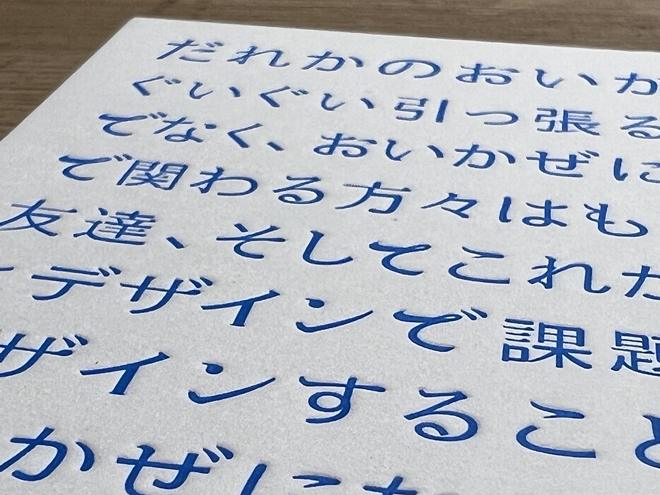 だれかのおいか
ぐいぐい引っ張る
でなく、おいかぜに
で関わる方々はも
友達、そしてこれか
デザインで課題
ザインすること
かぜにな